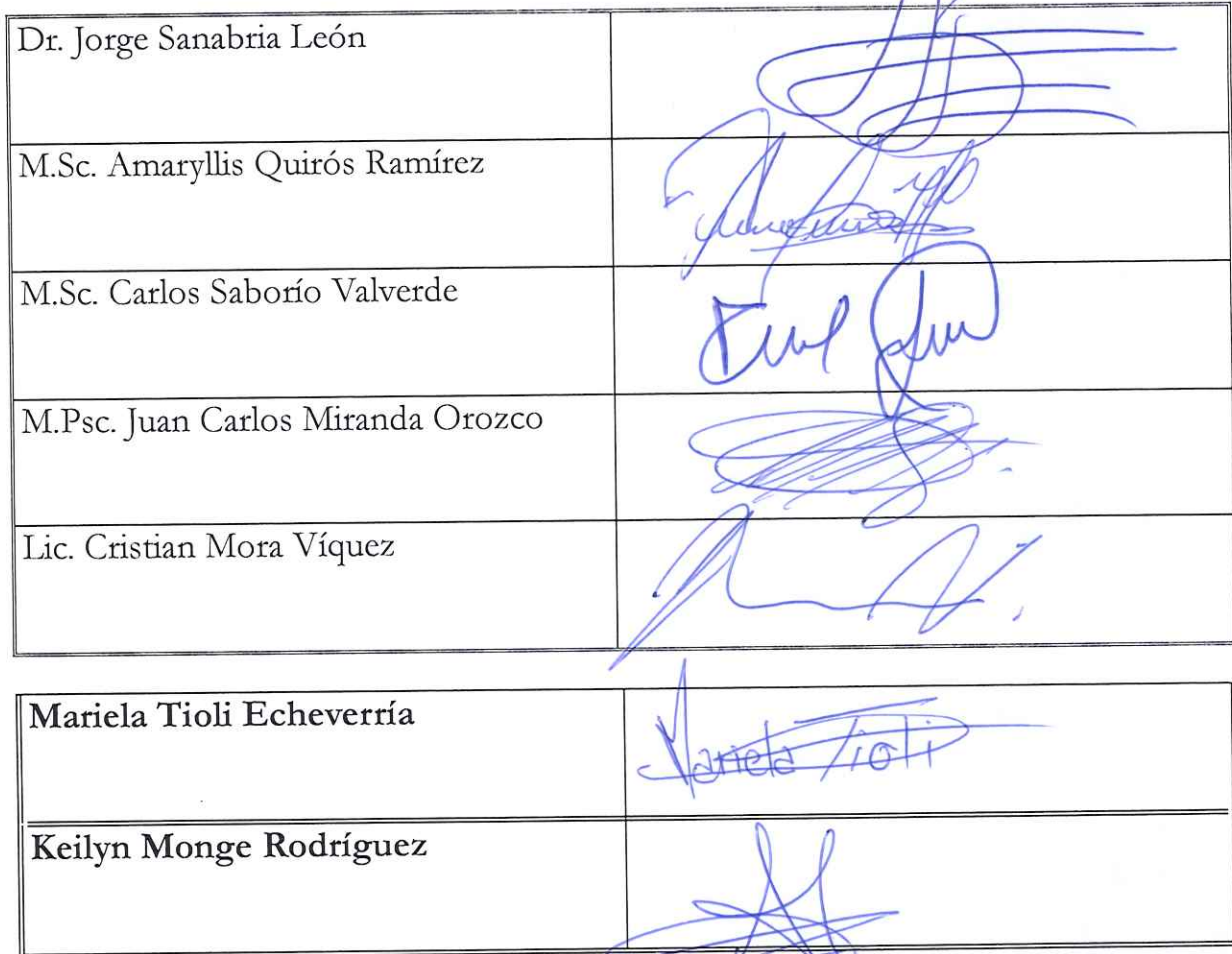 Dr. Jorge Sanabria León
M.Sc. Amaryllis Quirós Ramírez
M.Sc. Carlos Saborío Valverde
M.Psc. Juan Carlos Miranda Orozco
Lic. Cristian Mora Víquez
Mariela Tioli Echeverría
Mariela Tioli
Keilyn Monge Rodríguez